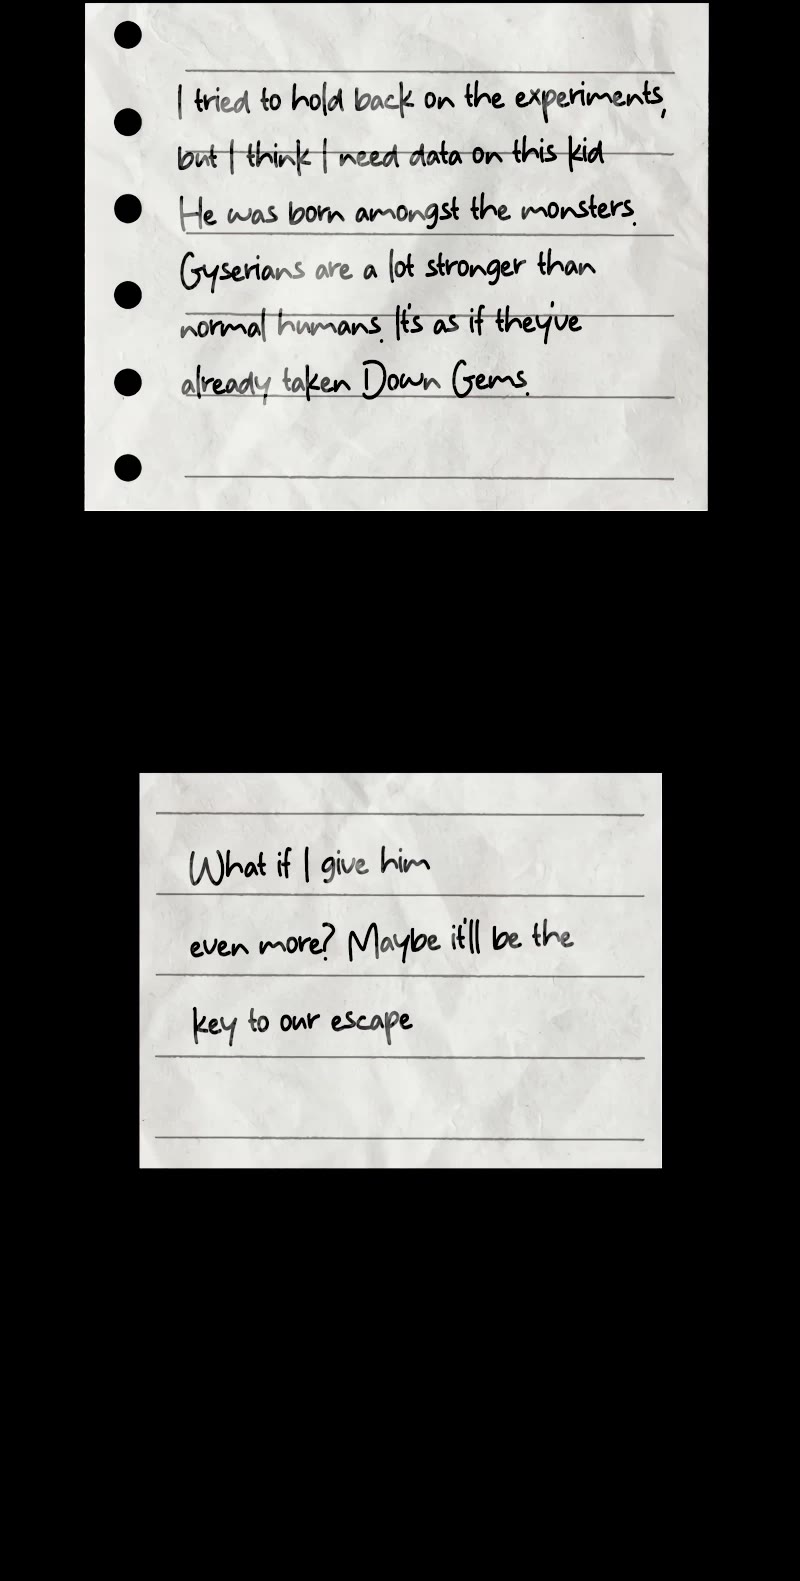 I tried to hold back on the experiments,
but I think I need data on this kid
He was born amongst the monsters.
Gyserians are a lot stronger than
normal humans. It's as if they've
already taken Down Gems.
What if I give him
even more? Maybe it'll be the
key to our escape